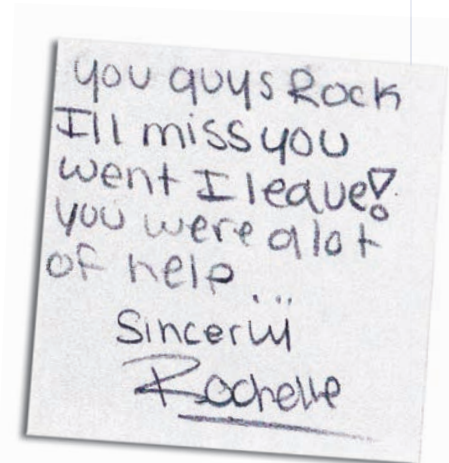 you guys Rock
I'll miss you
went I leave!
you were a lot
of help...
Sinceriy
Rochelle